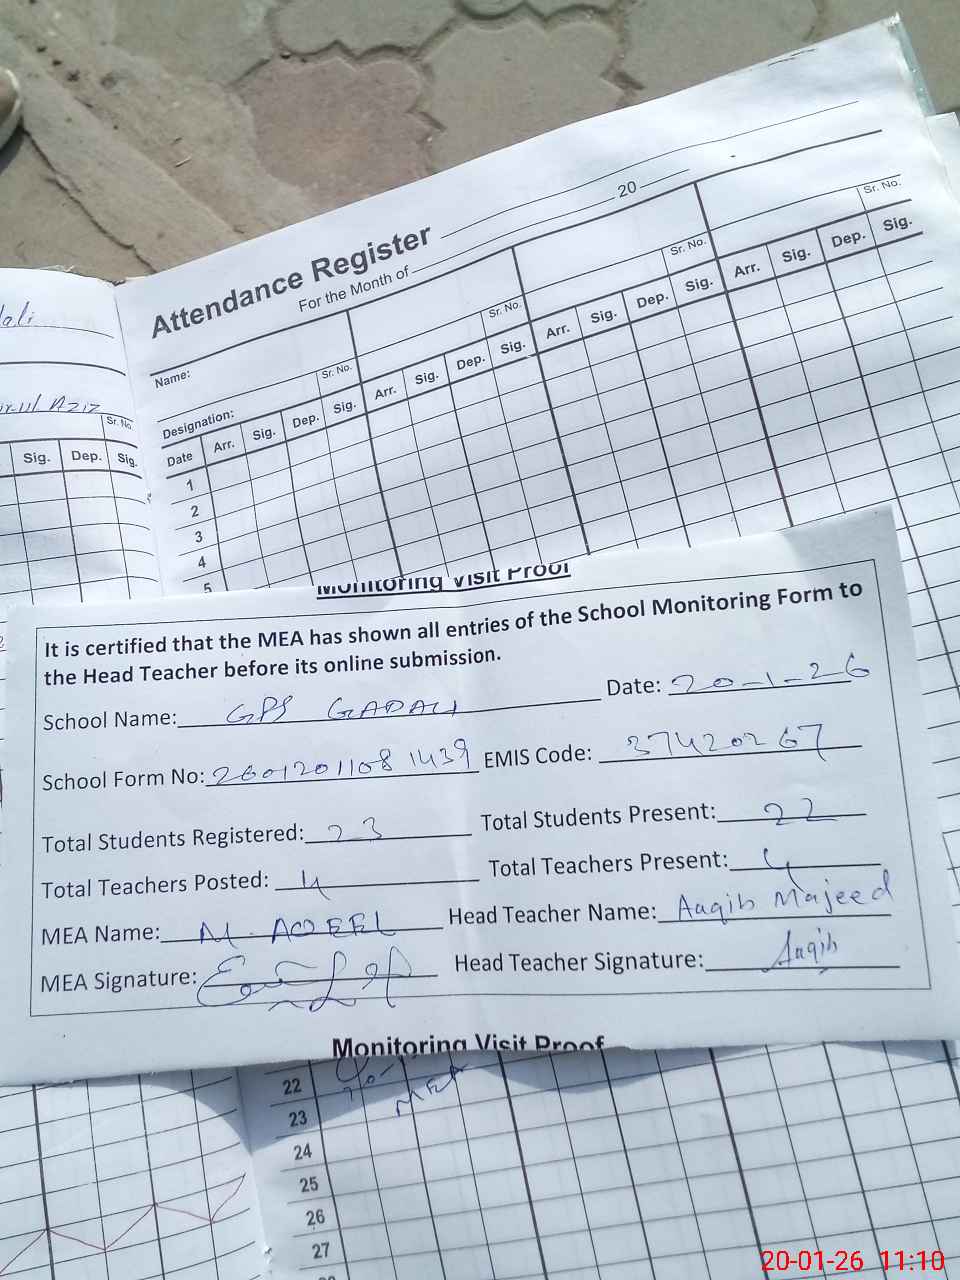 Attendance Register
For the Month of 20
Name: Sr. No. Sr. No. Sr. No. Sr. No.
Designation:
Date Arr. Sig. Dep. Sig. Arr. Sig. Dep. Sig. Arr. Sig. Dep. Sig. Arr. Sig. Dep. Sig.
1
2
3
4
5
AZIZ
Sr. No.
Sig. Dep. Sig.
Monitoring Visit Proof
It is certified that the MEA has shown all entries of the School Monitoring Form to
the Head Teacher before its online submission.
School Name: GPS GADALI Date: 20-1-26
School Form No: 26012011081439 EMIS Code: 37420267
Total Students Registered: 23 Total Students Present: 22
Total Teachers Posted: 4 Total Teachers Present: 4
MEA Name: M. AQEEL Head Teacher Name: Aaqib Majeed
MEA Signature: Head Teacher Signature: Aaqib
Monitoring Visit Proof
22
23 MEA
24
25
26
27
20-01-26 11:10